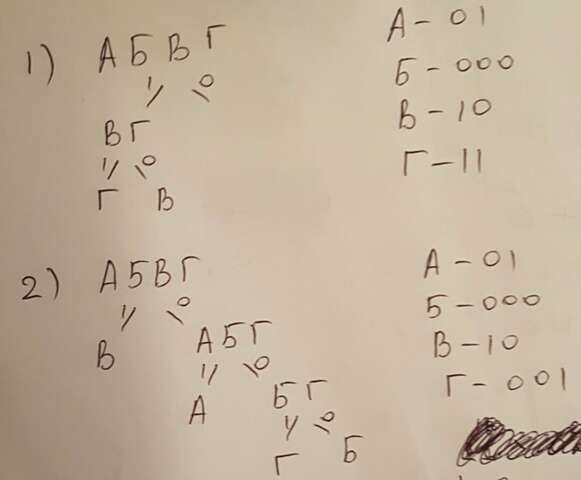 1) А Б В Г
1 0
В Г
1 0
Г В
А - 01
Б - 000
В - 10
Г - 11
2) А Б В Г
1 0
В А Б Г
1 0
А Б Г
1 0
Г Б
А - 01
Б - 000
В - 10
Г - 001